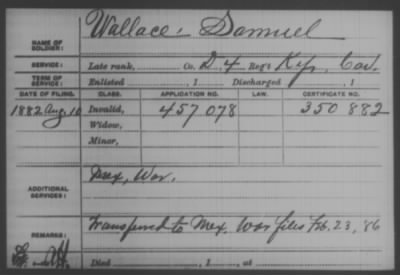 Wallace, Samuel
NAME OF SOLDIER:
SERVICE: Late rank, Co. D, 4 Reg't Ky. Cav.
TERM OF SERVICE: Enlisted , 1 Discharged , 1
DATE OF FILING. CLASS. APPLICATION NO. LAW. CERTIFICATE NO.
1882 Aug. 10 Invalid, 457 078 350 882
Widow,
Minor,
ADDITIONAL SERVICES: Mex, War.
REMARKS: Transferred to Mex. War files Feb. 23, '86
Died , 1 , at